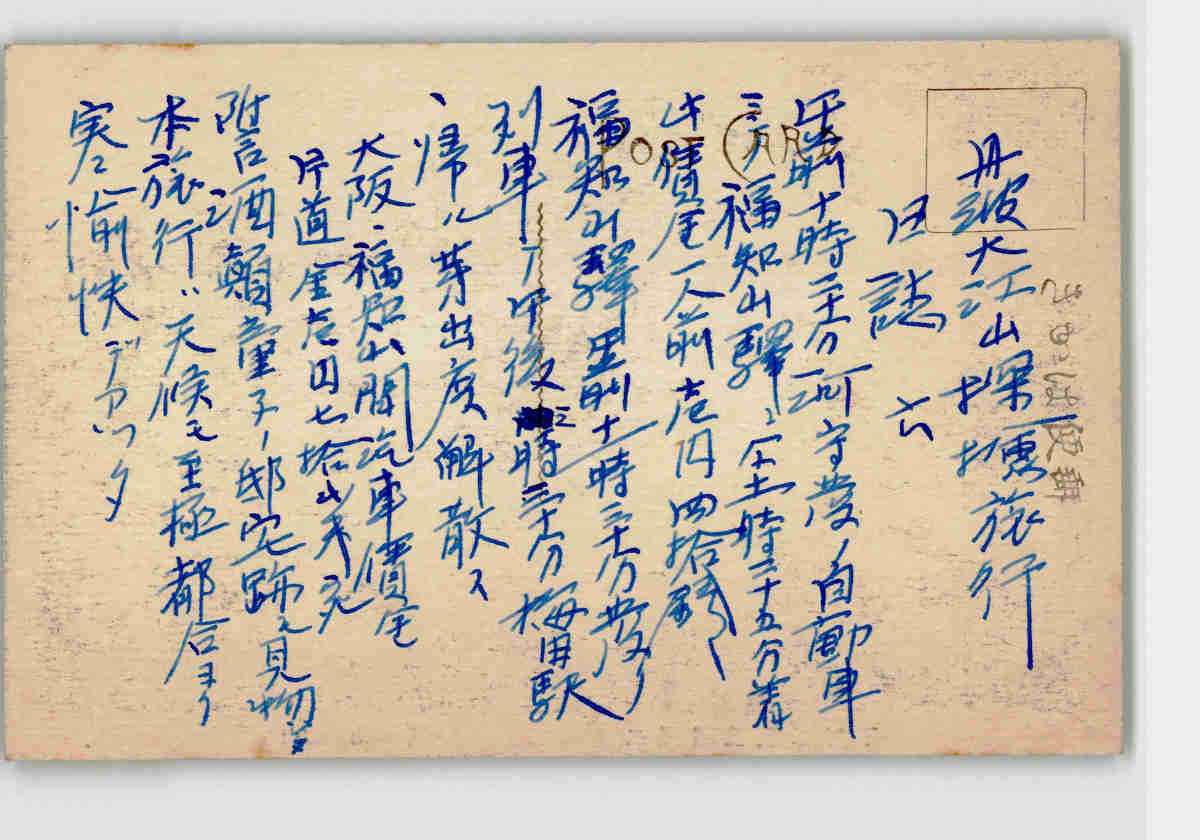 丹波大江山探険旅行
日誌 六
午前十時二十分河守発ノ自動車
ニテ福知山駅ニ 十一時三十五分着
此賃金一人前壱円四拾銭
福知山驛 午前十一時三十分発ノ
列車ニテ午後三時三十分梅田駅
ヘ帰ル 芽出度解散ス
大阪、福知山間汽車賃金
片道金壱円七拾
附言 酒顛童子ノ邸宅跡ヲ見物ス
本旅行ハ天候モ至極都合ヨク
実ニ愉快デアツタ
POST CARD
きかは便郵